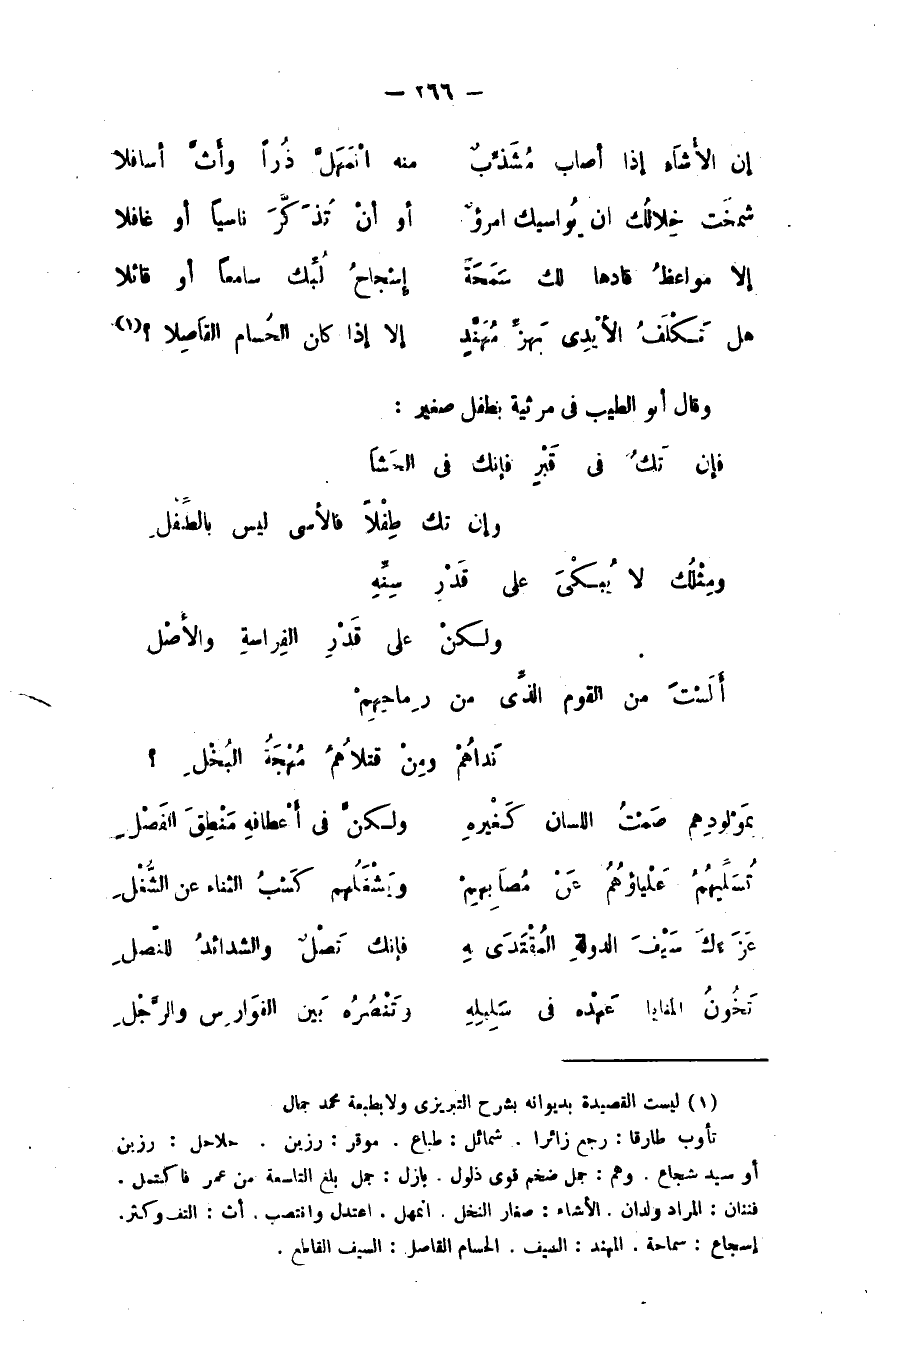 — ٢٦٦ —
إن الأشَاءَ إذا أصاب مُشَذبٌ منه اتْمَهَلَّ ذُراً وأَثَّ أسافلا
شمخَت خِلالُك ان يُواسيك امرؤٌ أو أنْ تُذَكَّرَ ناسياً أو غافلا
إلا مواعظُ قادها لك سَمَحَةً إسْجاحُ لُبِّك سامعاً أو قائلا
هل تَكْلَفُ الأيْدِى بهزِّ مُهَنَّدٍ إلا إذا كان الحُسام القاصِلا ؟(١)
وقال أبو الطيب فى مرثية بطفل صغير :
فإن تَكُ فى قَبْرٍ فإنك فى الحَشَا
وإن تك طِفْلاً فالأسى ليس بالطِّفْلِ
ومِثْلُك لا يُبكَى على قَدْرِ سِنِّهِ
ولكنْ على قَدْرِ الفِراسةِ والأَصْل
أَلَسْتَ من القوم الذِّى من رِماحِهِمْ
نَداهُمْ ومِنْ قتلاهُمُ مُهْجَةُ البُخْلِ ؟
بمَوْلودِهم صَمْتُ اللسان كَغيْرِهِ ولكنَّ فى أعْطافهِ مَنْطِقَ الفَصْلِ
تُسَلِّيهُمُ عَلْياؤُهُمُ عَنْ مُصَابِهِمْ ويَشْغَلُهم كَسْبُ الثناء عن الشُّغْلِ
عَزَاءَكَ سَيْفَ الدولةِ المُقْتَدَى بِهِ فإنك نَصْلٌ والشدائدُ للنّصلِ
تَخُونُ المنايا عَهْدَه فى سَلِيلِهِ وتَنْصُرُه بَين الفَوَارِس والرَّجْلِ
(١) ليست القصيدة بديوانه بشرح التبريزى ولا بطبعة محمد جمال
تأوب طارقا : رجع زائرا . شمائل : طباع . موقر : رزين . حلاحل : رزين
أو سيد شجاع . وهم : جمل ضخم قوى ذلول . بازل : جمل بلغ التاسعة من عمر فاكتمل .
فننان : المراد ولدان . الأشاء : صغار النخل . اتمهل . اعتدل وانتصب . أث : التف وكثر.
إسجاع : سماحة . المهند : السيف . الحسام القاصل : السيف القاطع .